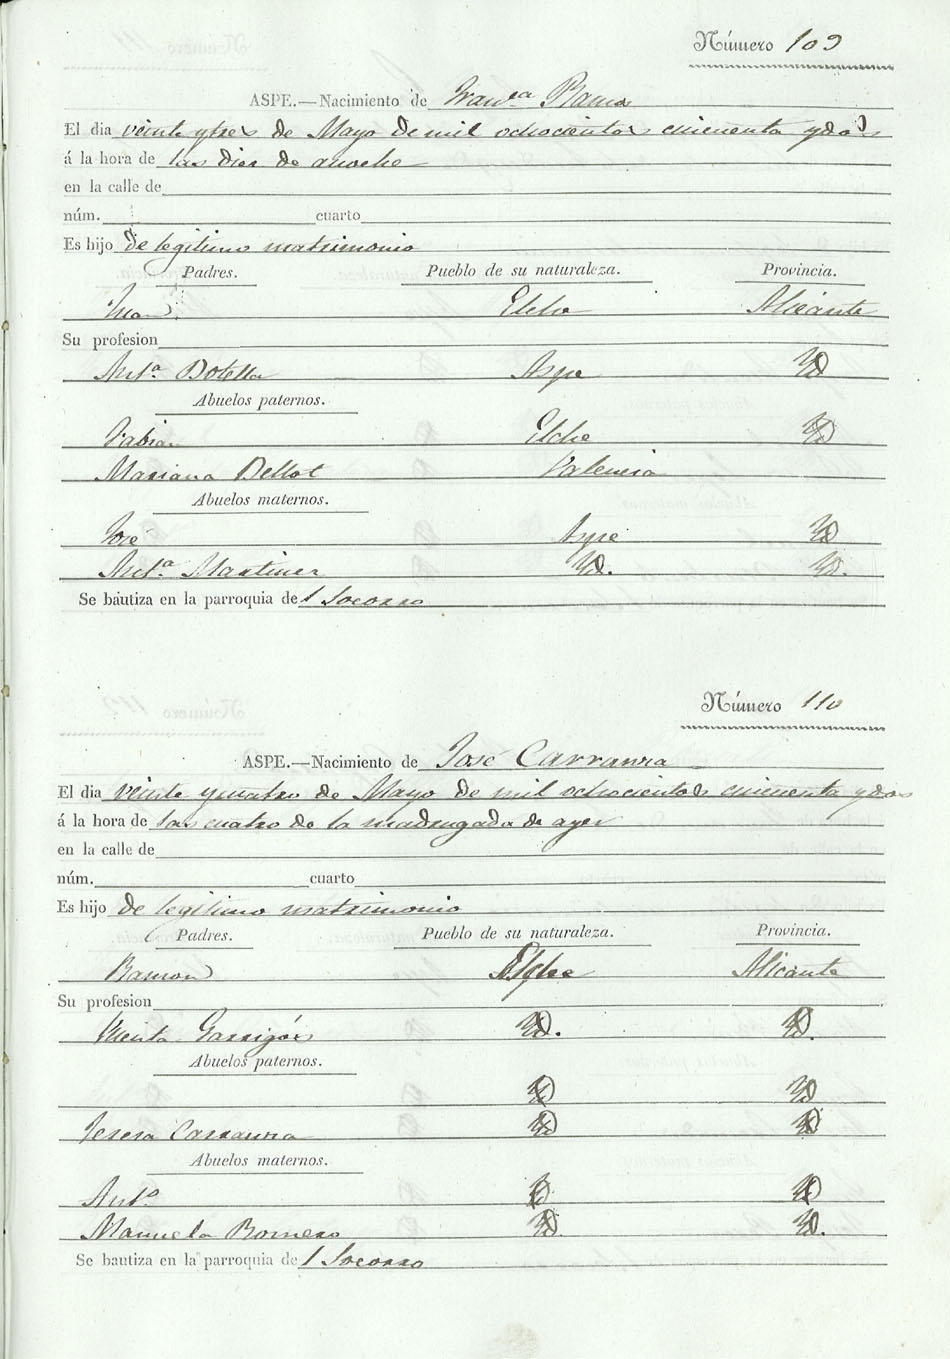 Número 109
ASPE.—Nacimiento de Fran.ca Ramos
El dia veinte y tres de Mayo de mil ochocientos cincuenta y dos
á la hora de las diez de anoche
en la calle de
núm. cuarto
Es hijo de legitimo matrimonio
Padres. Pueblo de su naturaleza. Provincia.
Elche Alicante
Su profesion
Ant.a Botella Aspe Yd
Abuelos paternos.
Fabian Elche Yd
Mariana Bellot Valencia
Abuelos maternos.
José Aspe Yd
Ant.a Martinez Yd. Yd.
Se bautiza en la parroquia del Socorro
Número 110
ASPE.—Nacimiento de José Carranza
El dia veinte y cuatro de Mayo de mil ochocientos cincuenta y dos
á la hora de las cuatro de la madrugada de ayer
en la calle de
núm. cuarto
Es hijo de legitimo matrimonio
Padres. Pueblo de su naturaleza. Provincia.
Ramon Alicante
Su profesion
Garrigós Yd. Yd.
Abuelos paternos.
Yd Yd
Teresa Carranza Yd Yd
Abuelos maternos.
Ant.o Yd Yd
Manuela Romero Yd. Yd.
Se bautiza en la parroquia del Socorro